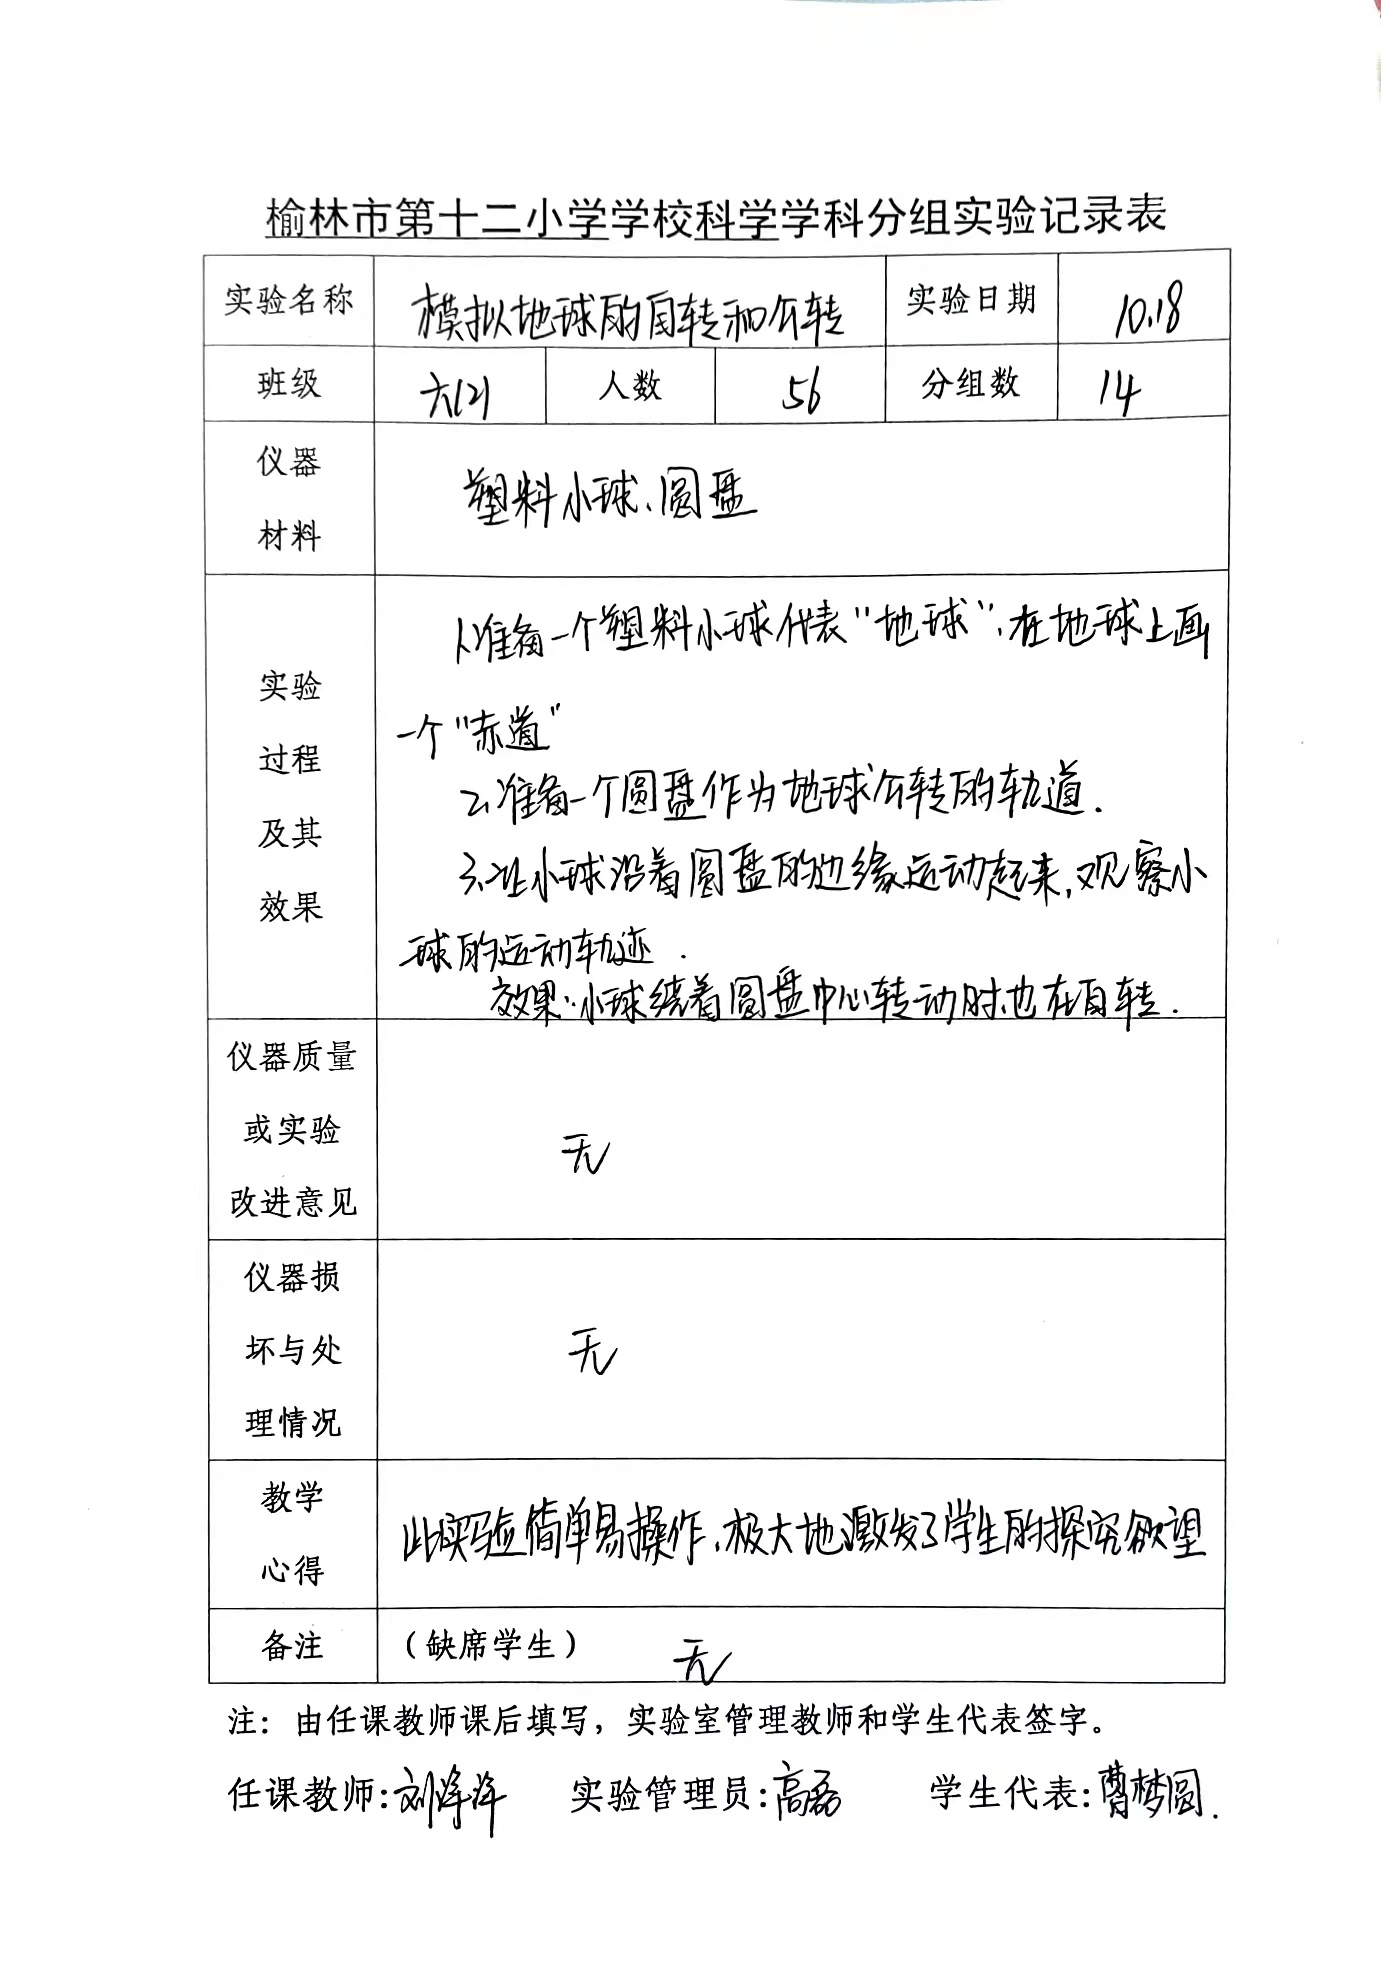 榆林市第十二小学学校科学学科分组实验记录表
实验名称 模拟地球的自转和公转 实验日期 10.18
班级 六(2) 人数 56 分组数 14
仪器
材料
塑料小球、圆盘
实验
过程
及其
效果
1、准备一个塑料小球代表“地球”,在地球上画
一个“赤道”
2、准备一个圆盘作为地球公转的轨道.
3、让小球沿着圆盘的边缘运动起来,观察小
球的运动轨迹.
效果:小球绕着圆盘中心转动时,也在自转.
仪器质量
或实验
改进意见
无
仪器损
坏与处
理情况
无
教学
心得
此实验简单易操作,极大地激发了学生的探究欲望
备注 (缺席学生) 无
注:由任课教师课后填写,实验室管理教师和学生代表签字。
任课教师:刘洋洋 实验管理员:高磊 学生代表:曹梦圆.